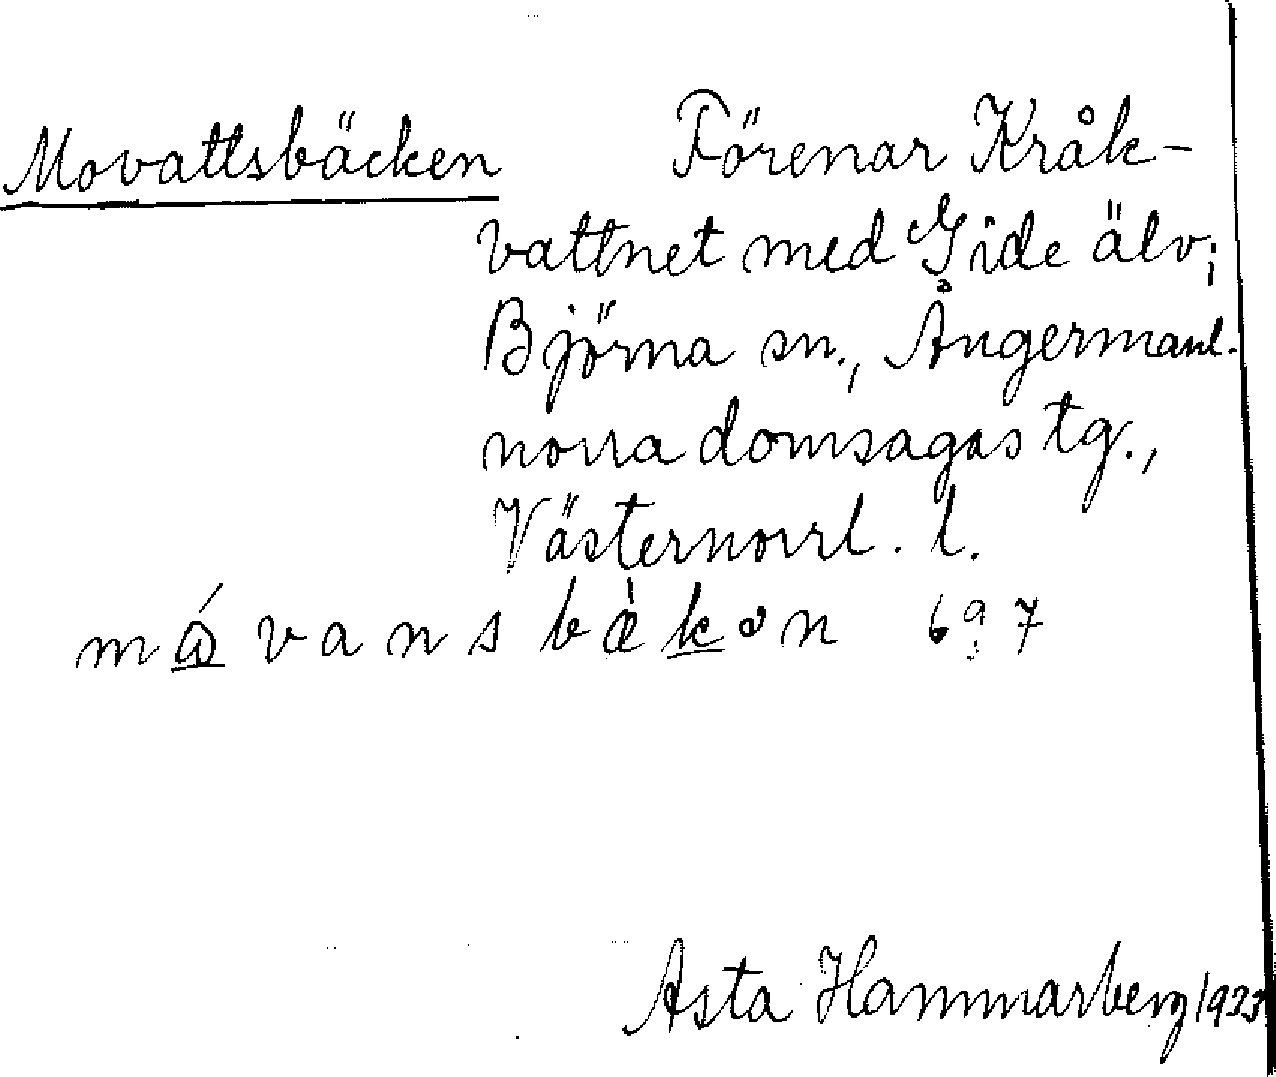 Movattsbäcken Förenar Kråk-
vattnet med Gide älv;
Björna sn., Ångermanl.
norra domsagas tg.,
Västernorrl. l.
vansbäkən
Asta Hammarberg 1923